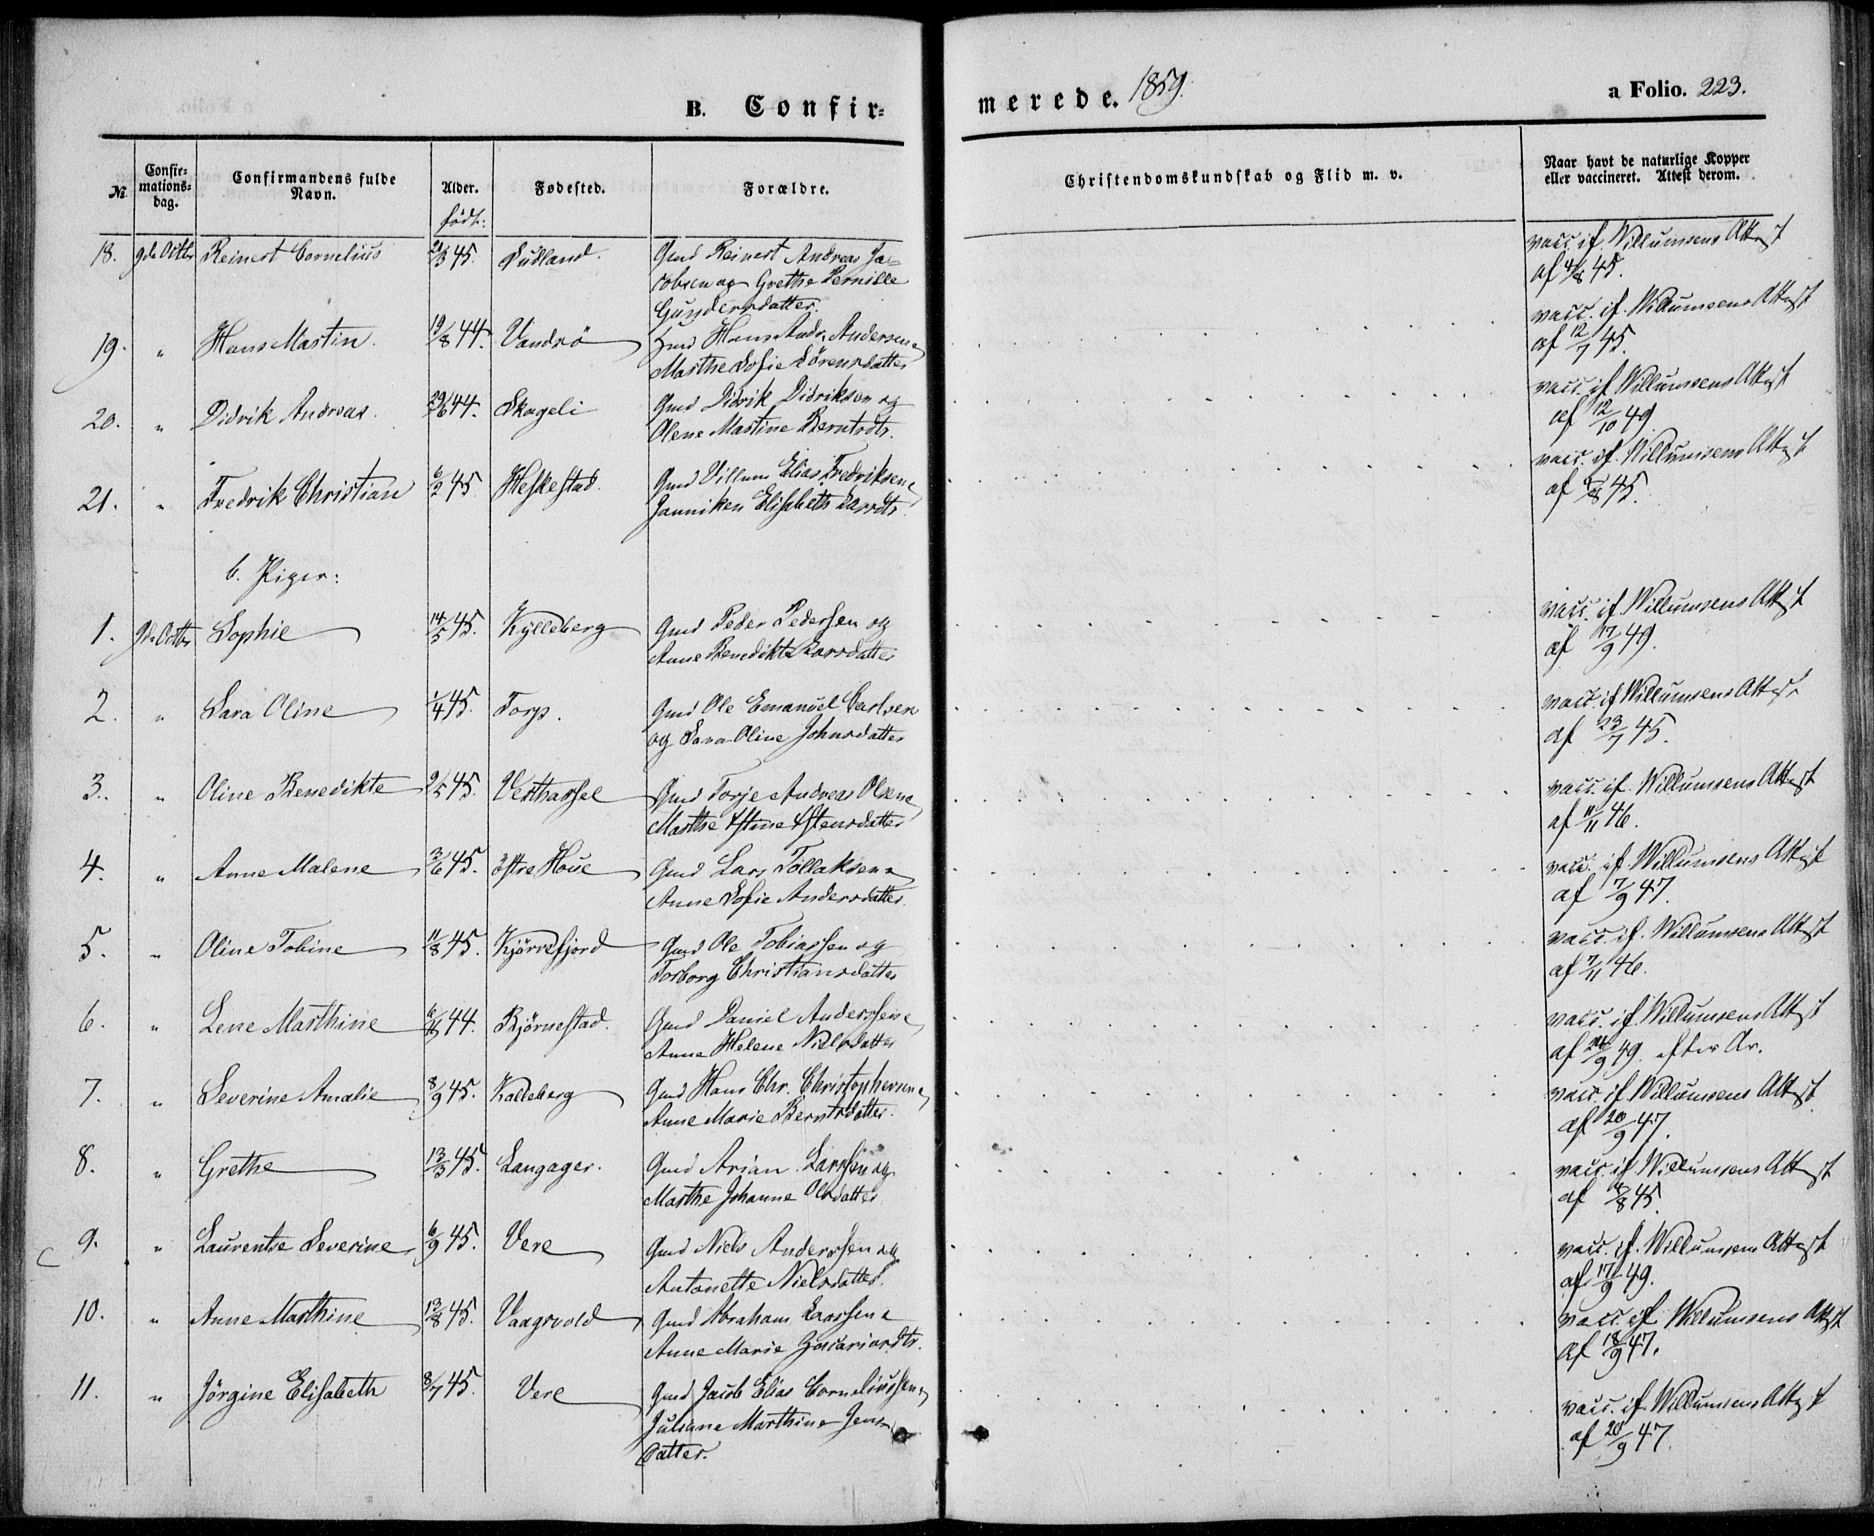 B. Confir-
merede. 1859.
a Folio. 223.
№
Confir-
mations-
dag.
Confirmandens fulde
Navn.
Alder.
født:
Fødested.
Forældre.
Christendomskundskab og Flid m. v.
Naar havt de naturlige Kopper
eller vaccineret. Attest derom.
18. 9de Octbr Reinert Cornelius 45. Gmd Reinert Andreas Ja-
cobsen og Grethe Pernille
Gundersdatter.
vacc. if. Willumsens Attest
af 4/8 45.
19. " Hans Martin. 19/8 44. Vandsö Hans Andr. Andersen
Marthe Sofie Sörensdatter
vacc. if. Willumsens Attest
af 12/7 45.
20. " Didrik Andreas. 29/6 44. Skageli Gmd Didrik Didriksen og
Olene Martine Berntsdtr.
vacc. if. Willumsens Attest
af 12/10 49.
21. " Fredrik Christian 6/2 45. Heskestad. Gmd Villum Elias Fredriksen
Janniken Elisabeth Larsdtr.
vacc. if. Willumsens Attest
af 45.
b. Piger:
1. 9de Octbr Sophie 14/5 45. Kylleberg Gmd Peder Pedersen og
Anne Benedikte Larsdatter
vacc. if. Willumsens Attest
af 17/9 49.
2. " Sara Oline 1/4 45. Torp. Gmd Ole Emanuel Carlsen
og Sara Oline Johnsdatter
vacc. if Willumsens Attest
af 23/7 45.
3. " Oline Benedikte 2/5 45. Vesthassel Gmd Torje Andreas Olsen
Marthe Astine Astensdatter
vacc. if. Willumsens Attest
af 11/11 46.
4. " Anne Malene 3/6 45. Østre Houe Gmd Lars Tollaksen
Anne Sofie Andersdatter.
vacc. if. Willumsens Attest
af 7/9 47.
5. " Oline Tobine 11/8 45. Kjörrefjord Gmd Ole Tobiassen og
Torborg Christiansdatter
vacc. if. Willumsens Attest
af 7/11 46.
6. " Lene Marthine 44. Bjørnestad. Gmd Daniel Andersen
Anne Helene Nielsdatter
vacc. if. Willumsens Attest
af 24/9 49. efter Ar.
7. " Severine Amalie 8/9 45. Kalleberg Gmd Hans Chr. Christophersen
Anne Marie Berntsdatter.
vacc. if. Willumsens Attest
af 20/9 47.
8. " Grethe 13/3 45. Langager. Gmd Arian Larssen og
Marthe Johanne Olsdatter
vacc. if. Willumsens Attest
af 45.
9. " Laurentse Severine 6/9 45. Vere Gmd Niels Anderssen og
Antonette Nielsdatter.
vacc. if. Willumsens Attest
af 17/9 49.
10. " Anne Marthine 13/8 45. Vaagsvold Gmd Abraham Larssen
Anne Marie Zacariasdtr.
vacc. if. Willumsens Attest
af 18/9 47.
11. " Jörgine Elisabeth 8/7 45. Vere Gmd Jacob Elias Corneliussen
Juliane Marthine Jens-
datter.
vacc. if. Willumsens Attest
af 20/9 47.